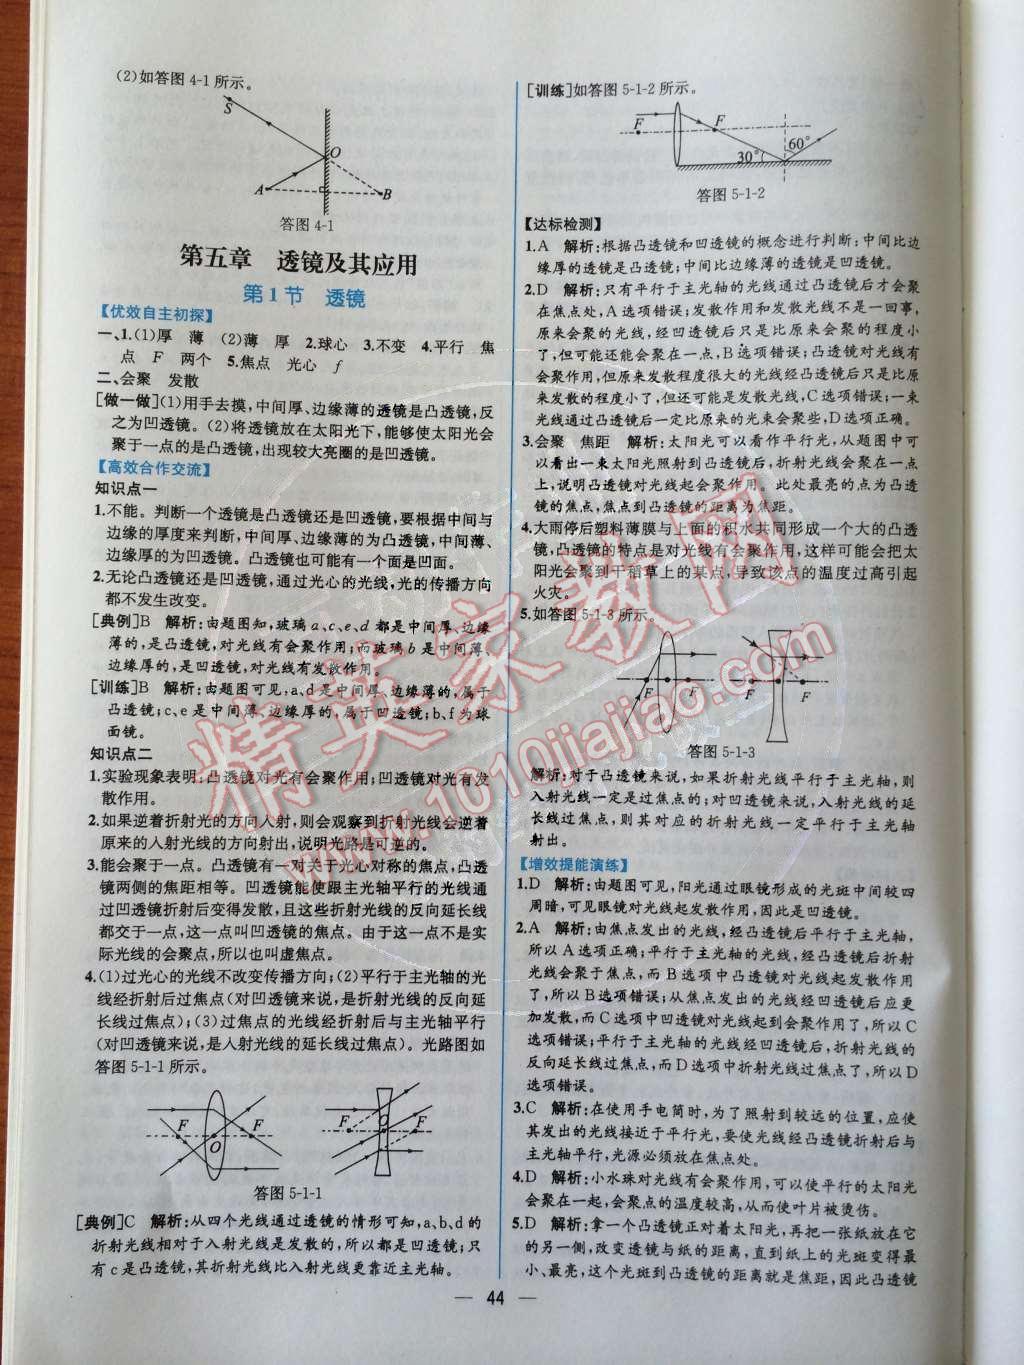 (2)如答图4-1所示。
S
O
A
B
答图4-1
第五章 透镜及其应用
第1节 透镜
【优效自主初探】
一、1.(1)厚 薄 (2)薄 厚 2.球心 3.不变 4.平行 焦
点 F 两个 5.焦点 光心 f
二、会聚 发散
[做一做](1)用手去摸,中间厚、边缘薄的透镜是凸透镜,反
之为凹透镜。(2)将透镜放在太阳光下,能够使太阳光会
聚于一点的是凸透镜,出现较大亮圈的是凹透镜。
【高效合作交流】
知识点一
1.不能。判断一个透镜是凸透镜还是凹透镜,要根据中间与
边缘的厚度来判断,中间厚、边缘薄的为凸透镜,中间薄、
边缘厚的为凹透镜。凸透镜也可能有一个面是凹面。
2.无论凸透镜还是凹透镜,通过光心的光线,光的传播方向
都不发生改变。
[典例]B 解析:由题图知,玻璃a、c、e、d都是中间厚、边缘
薄的,是凸透镜,对光线有会聚作用;而玻璃b是中间薄、
边缘厚的,是凹透镜,对光线有发散作用。
[训练]B 解析:由题图可见,a、d是中间厚、边缘薄的,属于
凸透镜;c、e是中间薄、边缘厚的,属于凹透镜;b、f为球
面镜。
知识点二
1.实验现象表明:凸透镜对光有会聚作用;凹透镜对光有发
散作用。
2.如果逆着折射光的方向入射,则会观察到折射光线会逆着
原来的入射光线的方向射出,说明光路是可逆的。
3.能会聚于一点。凸透镜有一对关于光心对称的焦点,凸透
镜两侧的焦距相等。凹透镜能使跟主光轴平行的光线通
过凹透镜折射后变得发散,且这些折射光线的反向延长线
都交于一点,这一点叫凹透镜的焦点。由于这一点不是实
际光线的会聚点,所以也叫虚焦点。
4.(1)过光心的光线不改变传播方向;(2)平行于主光轴的光
线经折射后过焦点(对凹透镜来说,是折射光线的反向延
长线过焦点);(3)过焦点的光线经折射后与主光轴平行
(对凹透镜来说,是入射光线的延长线过焦点)。光路图如
答图5-1-1所示。
F O F F O F
答图5-1-1
[典例]C 解析:从四个光线通过透镜的情形可知,a、b、d的
折射光线相对于入射光线是发散的,所以都是凹透镜;只
有c是凸透镜,其折射光线比入射光线更靠近主光轴。
[训练]如答图5-1-2所示。
F F 30° 60°
答图5-1-2
【达标检测】
1.A 解析:根据凸透镜和凹透镜的概念进行判断;中间比边
缘厚的透镜是凸透镜;中间比边缘薄的透镜是凹透镜。
2.D 解析:只有平行于主光轴的光线通过凸透镜后才会聚
在焦点处,A选项错误;发散作用和发散光线不是一回事,
原来会聚的光线,经凹透镜后只是比原来会聚的程度小
了,但可能还能会聚在一点,B选项错误;凸透镜对光线有
会聚作用,但原来发散程度很大的光线经凸透镜后只是比原
来发散的程度小了,但还可能是发散光线,C选项错误;一
束光线通过凸透镜后一定比原来的光束会聚些,D选项正确。
3.会聚 焦距 解析:太阳光可以看作平行光,从题图中可
以看出一束太阳光照射到凸透镜后,折射光线会聚在一点
上,说明凸透镜对光线起会聚作用。此处最亮的点为凸透
镜的焦点,焦点到凸透镜的距离为焦距。
4.大雨停后塑料薄膜与上面的积水共同形成一个大的凸透
镜,凸透镜的特点是对光线有会聚作用,这样可能会把太
阳光会聚到干稻草上的某点,导致该点的温度过高引起
火灾。
5.如答图5-1-3所示。
F F F F
答图5-1-3
解析:对于凸透镜来说,如果折射光线平行于主光轴,则
入射光线一定是过焦点的;对凹透镜来说,入射光线的延
长线过焦点,则其对应的折射光线一定平行于主光轴
射出。
【增效提能演练】
1.D 解析:由题图可见,阳光通过眼镜形成的光斑中间较四
周暗,可见眼镜对光线起发散作用,因此是凹透镜。
2.A 解析:由焦点发出的光线,经凸透镜后平行于主光轴,
所以A选项正确;平行于主光轴的光线,经凸透镜后折射
光线会聚于焦点,而B选项中凸透镜对光线起发散作用
了,所以B选项错误;从焦点发出的光线经凹透镜后应更
加发散,而C选项中凹透镜对光线起到会聚作用了,所以C
选项错误;平行于主光轴的光线经凹透镜后,折射光线的
反向延长线过焦点,而D选项中折射光线过焦点了,所以D
选项错误。
3.C 解析:在使用手电筒时,为了照射到较远的位置,应使
其发出的光线接近于平行光,要使光线经凸透镜折射后与
主光轴平行,光源必须放在焦点处。
4.D 解析:小水珠对光线有会聚作用,可以使平行的太阳光
会聚在一起,会聚点的温度较高,从而使叶片被烫伤。
5.D 解析:拿一个凸透镜正对着太阳光,再把一张纸放在它
的另一侧,改变透镜与纸的距离,直到纸上的光斑变得最
小、最亮,这个光斑到凸透镜的距离就是焦距,因此凸透镜
— 44 —
精英家教网
www.1010jiajiao.com